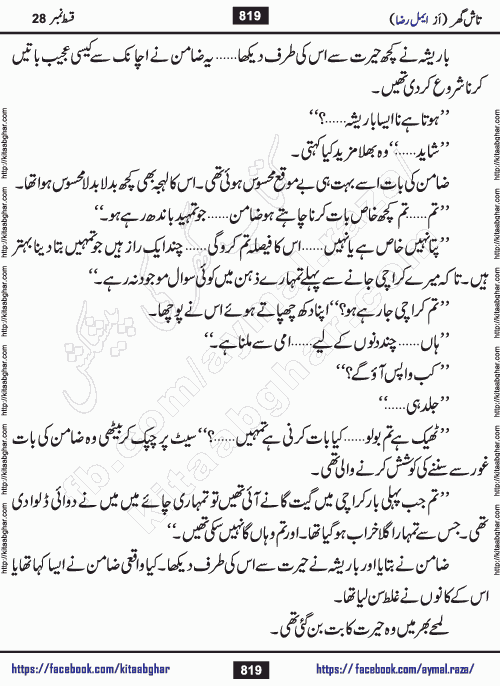 تاش گھر (از ایمل رضا)
819
قسط نمبر 28
باریشہ نے کچھ حیرت سے اس کی طرف دیکھا...... یہ ضامن نے اچانک سے کیسی عجیب باتیں
کرنا شروع کر دی تھیں۔
’’ہوتا ہے نا ایسا باریشہ......؟‘‘
’’شاید......‘‘ وہ بھلا مزید کیا کہتی۔
ضامن کی بات اسے بہت ہی بے موقع محسوس ہوئی تھی۔ اس کا لہجہ بھی کچھ بدلا بدلا محسوس ہوا تھا۔
’’تم...... تم کچھ خاص بات کرنا چاہتے ہو ضامن...... جو تمہید باندھ رہے ہو۔‘‘
’’پتا نہیں خاص ہے یا نہیں...... اس کا فیصلہ تم کرو گی...... چند ایک راز ہیں جو تمہیں بتا دینا بہتر
ہیں۔ تاکہ میرے کراچی جانے سے پہلے تمہارے ذہن میں کوئی سوال موجود نہ رہے۔‘‘
’’تم کراچی جا رہے ہو؟‘‘ اپنا دکھ چھپاتے ہوئے اس نے پوچھا۔
’’ہاں...... چند دنوں کے لیے...... امی سے ملنا ہے۔‘‘
’’کب واپس آؤ گے؟‘‘
’’جلد ہی......‘‘
’’ٹھیک ہے تم بولو...... کیا بات کرنی ہے تمہیں......؟‘‘ سیٹ پر چپک کر بیٹھی وہ ضامن کی بات
غور سے سننے کی کوشش کرنے والی تھی۔
’’تم جب پہلی بار کراچی میں گیت گانے آئی تھیں تو تمہاری چائے میں میں نے دوائی ڈلوا دی
تھی۔ جس سے تمہارا گلا خراب ہو گیا تھا۔ اور تم وہاں گا نہیں سکی تھیں۔‘‘
ضامن نے بتایا اور باریشہ نے حیرت سے اس کی طرف دیکھا۔ کیا واقعی ضامن نے ایسا کہا تھا یا
اس کے کانوں نے غلط سن لیا تھا۔
لمحے بھر میں وہ حیرت کا بت بن گئی تھی۔
https://facebook.com/kitaabghar
819
https://facebook.com/aymal.raza/
http://kitaabghar.com
fb.com/aymal.raza
kitaabghar.com